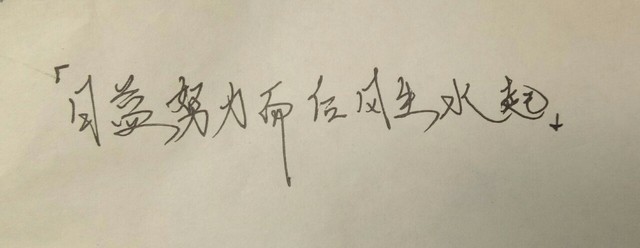 「日益努力而后风生水起」